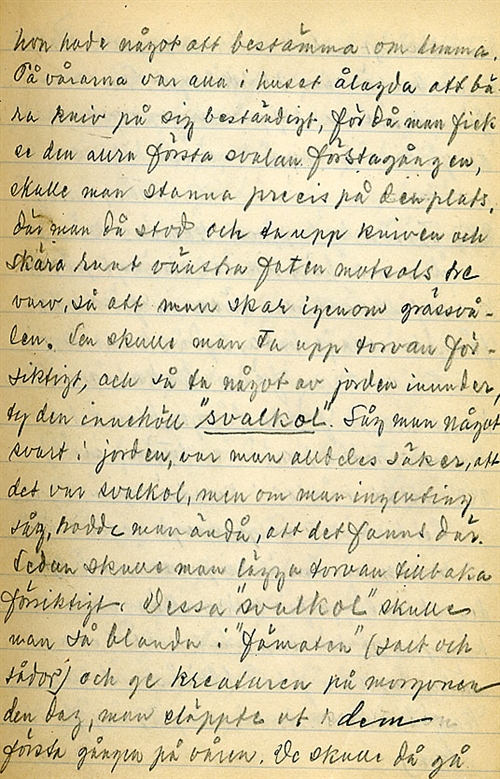 hon hade något att bestämma om hemma.
På vårarna var alla i huset ålagda att bä-
ra kniv på sig beständigt, för då man fick
se den allra första svalan förstagången,
skulle man stanna precis på den plats,
där man då stod och ta upp kniven och
skära runt vänstra foten motsols tre
varv, så att man skar igenom grässvå-
len. Sen skulle man ta upp torvan för-
siktigt, och så ta något av jorden inunder,
ty den innehöll "svalkol". Såg man något
svart i jorden, var man alldeles säker, att
det var svalkol, men om man ingenting
såg, hadde man ändå, att det fanns där.
Sedan skulle man lägga torvan tillbaka
försiktigt. Dessa "svalkol" skulle
man så blanda i "fämaten" (salt och
sådor) och ge kreaturen på morgonen
den dag, man släppte ut dem
första gången på våren. De skulle då gå